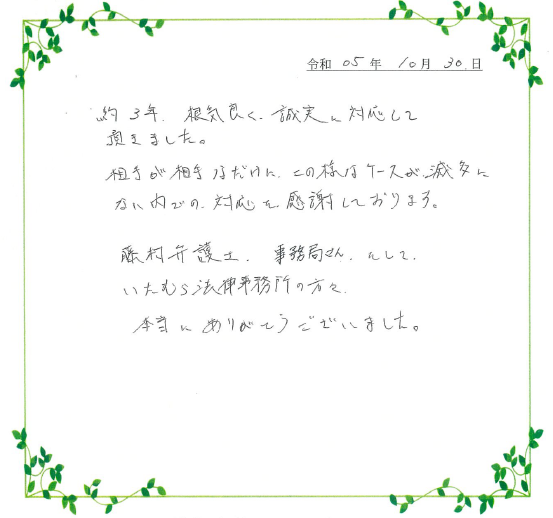 令和 05 年 10 月 30 日
約3年、根気良く、誠実に対応して
頂きました。
相手が相手なだけに、この様なケースが、滅多に
ない内での、対応を感謝しております。
藤村弁護士、事務局さん、そして、
いたむら法律事務所の方々、
本当にありがとうございました。